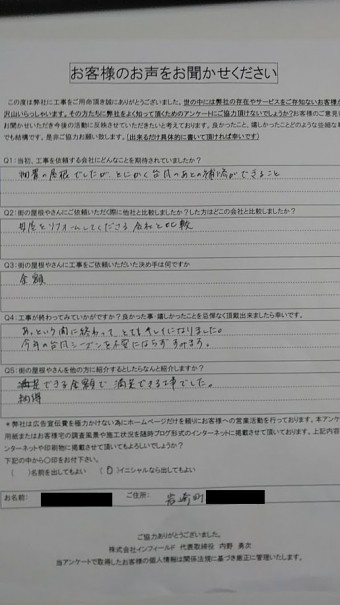 お客様のお声をお聞かせください
この度は弊社に工事をご用命頂き誠にありがとうございました。世の中には弊社の存在やサービスをご存知ないお客様が
沢山いらっしゃいます。その方たちに弊社をよく知って頂くためのアンケートにご協力頂けないでしょうか?お客様のご意見
お聞かせいただき今後の活動に反映させていただきたいと考えております。良かったこと、嬉しかったことどのような些細な事
でも結構です。是非ご協力お願い致します。(出来るだけ具体的に書いて頂ければ幸いです)
Q1:当初、工事を依頼する会社にどんなことを期待されていましたか?
物置の屋根でしたが とにかく台風のあとの補修ができること
Q2:街の屋根やさんにご依頼いただく際に他社と比較しましたか?した方はどこの会社と比較しましたか?
母屋をリフォームしてくださる会社と比較
Q3:街の屋根やさんに工事をご依頼いただいた決め手は何ですか
金額
Q4:工事が終わってみていかがですか?良かった事・嬉しかったことを忌憚なく頂戴出来ましたら幸いです。
あっという間に終わって、とてもキレイになりました。
今年の台風シーズンを不安にならずすみます。
Q5:街の屋根やさんを他の方に紹介するとしたらなんと紹介しますか?
満足できる金額で 満足できる工事でした。
納得
*弊社は広告宣伝費を極力かけない為にホームページだけを頼りにお客様への営業活動を行っております。本アンケ
用紙またはお客様宅の調査風景や施工状況を随時ブログ形式のインターネットに掲載させて頂いております。上記内容
ンターネットや印刷物に掲載させて頂いてもよろしいでしょうか?
下記の中から〇印をお付下さい。
( )名前を出してもよい (O)イニシャルなら出してもよい
お名前: ご住所:
ご協力ありがとうございました。
株式会社インフィールド 代表取締役 内野 勇次
当アンケートで取得したお客様の個人情報は関係法規に基づき厳正に管理いたします。